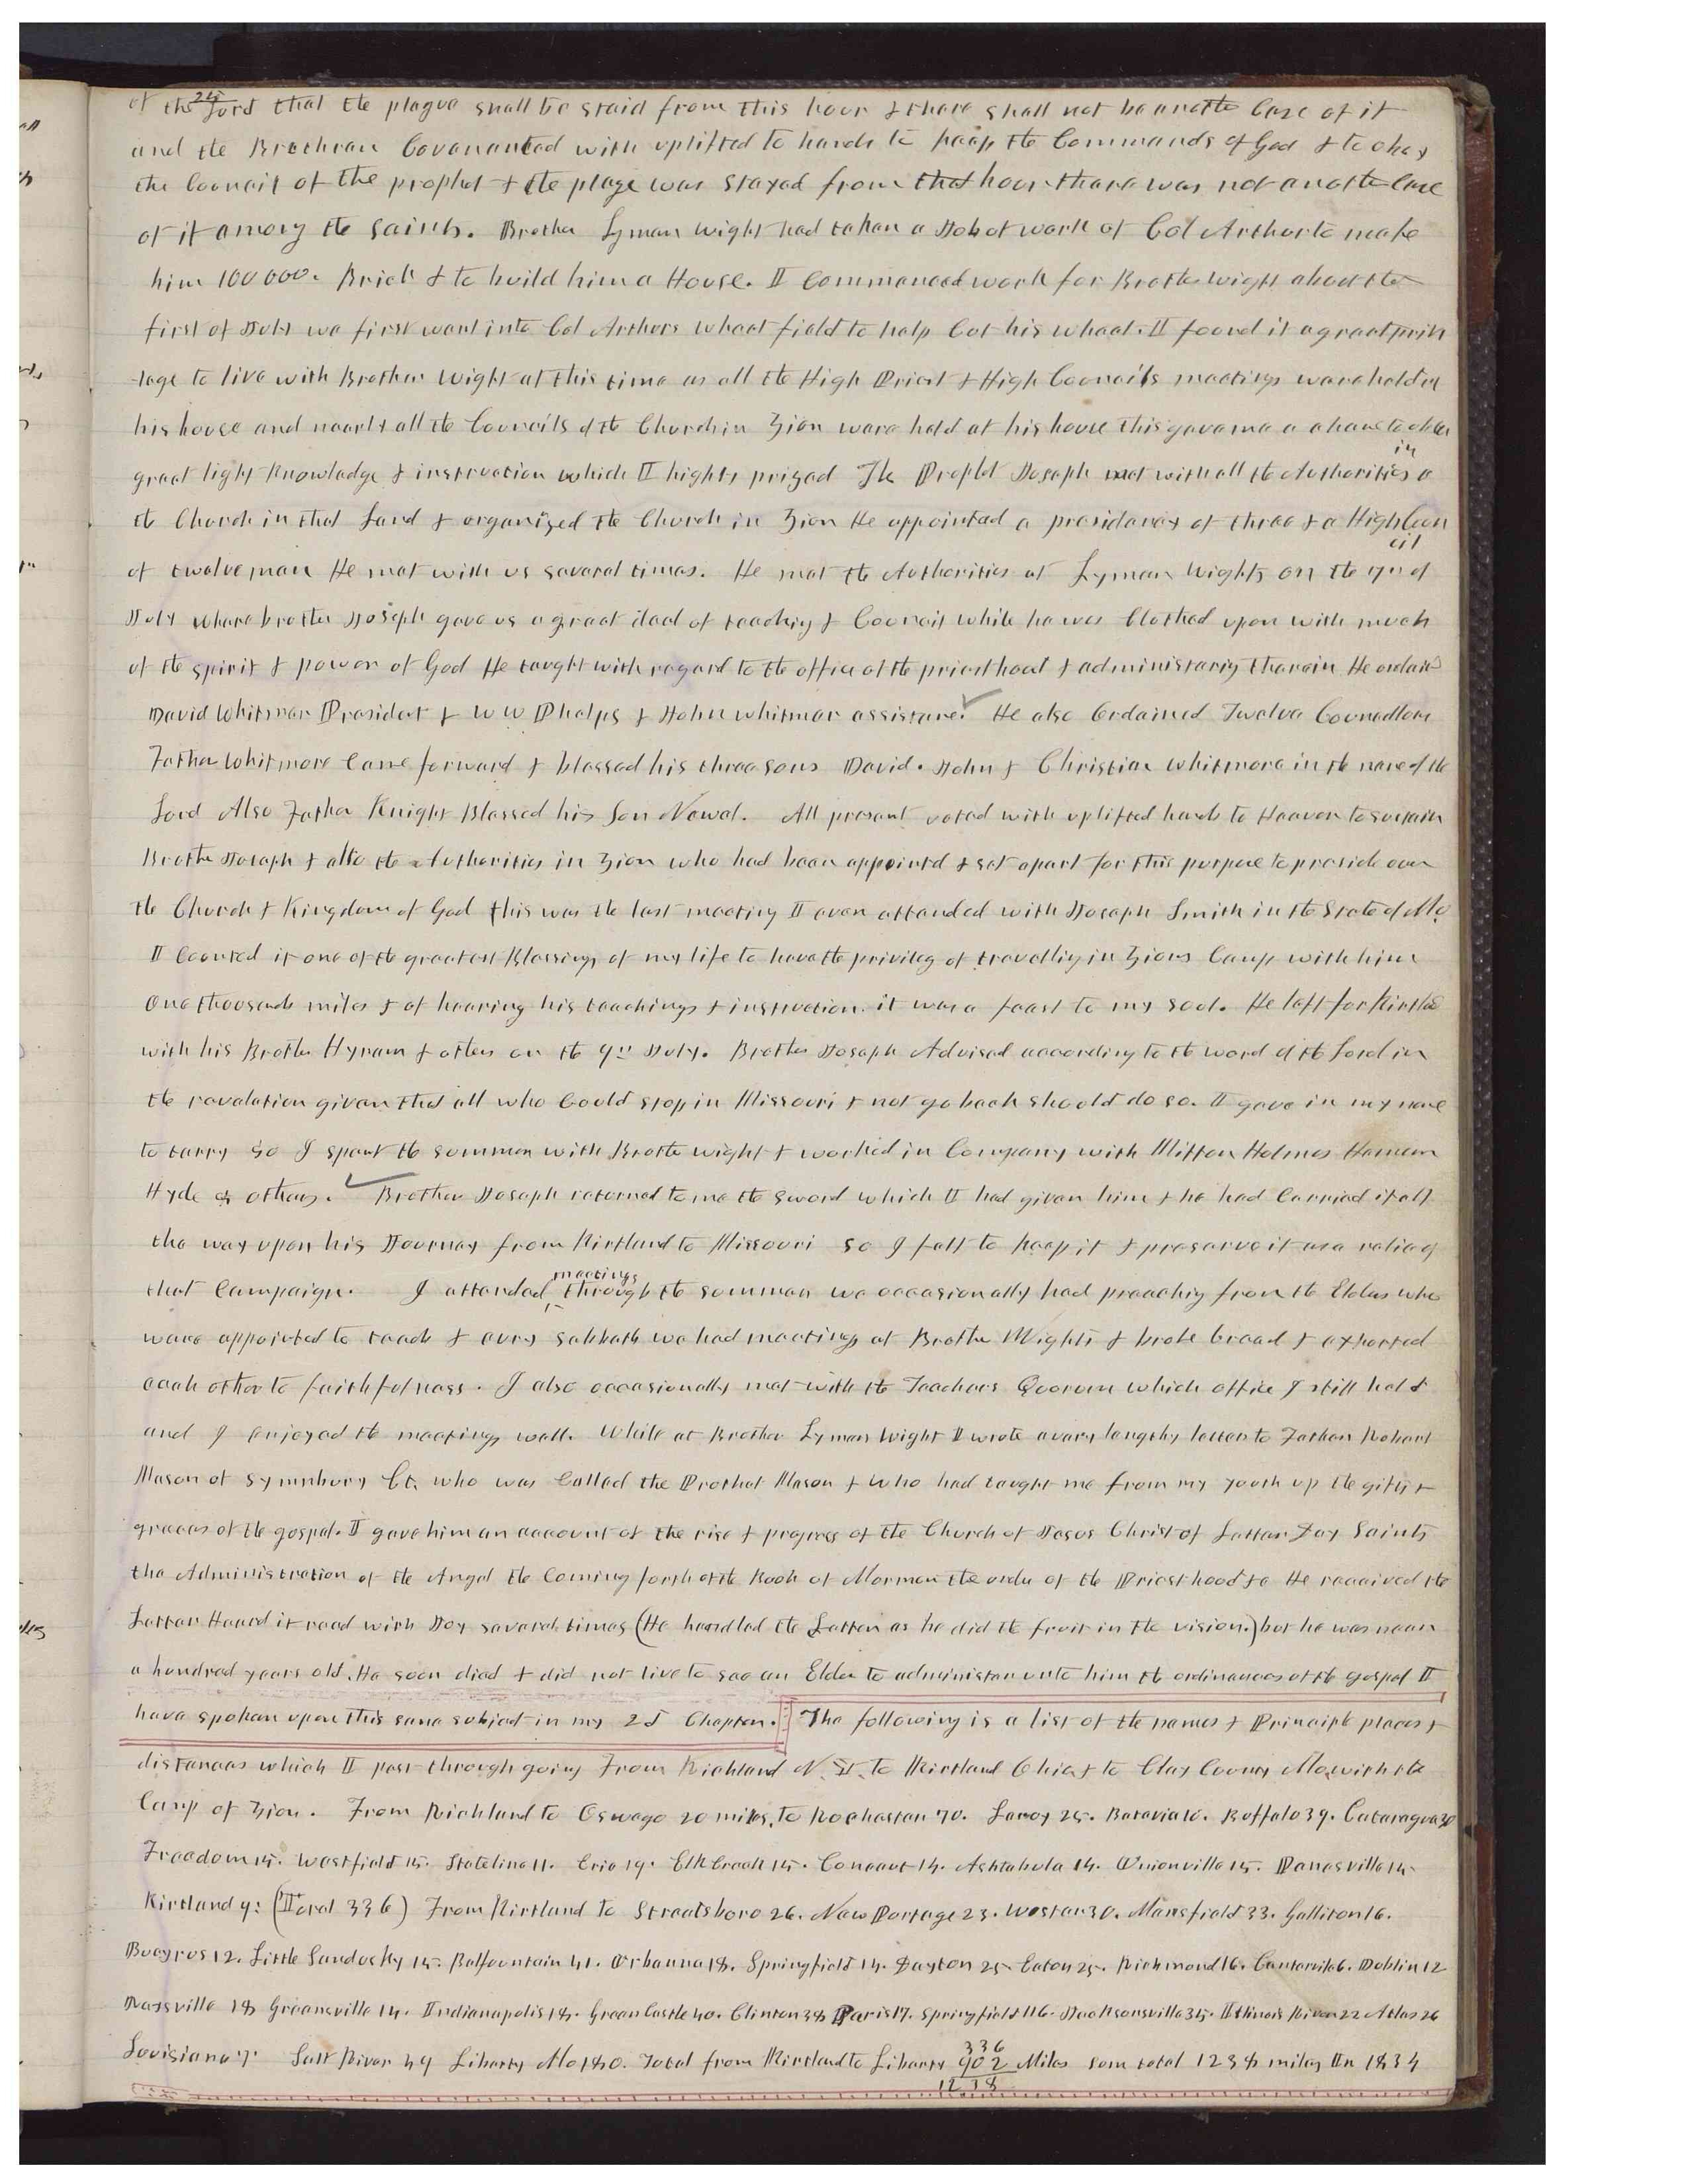 25
of the Lord that the plague shall be staid from this hour & there shall not be anothe Case of it
and the Brethren Covenanted with uplifted to hands to keep the Commands of God & to obey
the Councit of the prophet & the plage was stayed from that hour there was not anothe Case
of it among the saints. Brother Lyman Wight had taken a Job of work of Col Arthor to make
him 100000. Brick & to build him a House. I Commenced work for Brother Wight about the
first of July we first went into Col Arthors wheat field to help Cut his wheat. I found it a great priv
-lage to live with Brother Wight at this time as all the High Priest & High Councils meetings were held at
his house and nearly all the Councils of the Church in Zion were held at his house this gave me a chance to
great light knowledge & instruction which I highly prized The Prophet Joseph met with all the Authorities in
the Church in that Land & organized the Church in Zion He appointed a presidency of three & a High Coun
cil
of twelve men He met with us several times. He met the Authorities at Lyman Wights on the of
July where brother Joseph gave us a great deal of teaching & Council while he was Clothed upon with much
of the spirit & power of God He taught with regard to the office of the priesthood & administering therein He ordaind
David Whitmer President & W W Phelps & John Whitmer assistant. He also Ordained Twelve Councellors
Father Whitmore Came forward & blessed his three sons David. John & Christian Whitmore in the name of the
Lord Also Father Knight Blessed his Son Newel. All present voted with uplifted hands to Heaven to sustain
Brother Joseph & all the Authorities in Zion who had been appointd & set apart for this purpose to preside over
the Church & Kingdom of God this was the last meeting I ever attended with Joseph Smith in the State of Mo
I Counted it one of the greatest Blessings of my life to have the privileg of travelling in Zions Camp with him
one thousands miles & of hearing his teachings & instruction. it was a feast to my soul. He left for Kirtland
with his Brother Hyram & others on the 9th July. Brother Joseph Advised according to the word of the Lord in
the revelation given that all who Could stop in Missouri & not go back should do so. I gave in my name
to tarry So I spent the summer with Brother Wight & worked in Company with Milton Holmes Heman
Hyde & others. Brother Joseph returned to me the sword which I had given him & he had Carried it all
the way upon his Journey from Kirtland to Missouri so I felt to keep it & preserve it as a relic of
that Campaign. I attended meetings through the summer we occasionally had preaching from the Elders who
were appointed to teach & evry sabbath we had meetings at Brother Wights & broke bread & exhorted
each other to faithfulness. I also occasionally met with the Teachers Quorum which office I still held
and I enjoyed the meetings well. While at Brother Lyman Wight I wrote a very lengthy letter to Father Robert
Mason of Symnbury Ct. who was Called the Prothet Mason & who had taught me from my youth up the gifts &
graces of the gospel. I gave him an account of the rise & progress of the Church of Jesus Christ of Latter Day Saints
the Administration of the Angel the Coming forth of the Book of Mormon the order of the Priesthood &c He received the
Letter Heard it read with Joy several times (He handled the Letter as he did the fruit in the vision.) but he was near
a hundred years old. He soon died & did not live to see an Elder to administer unto him the ordinances of the gospel I
have spoken upon this same subject in my 2d Chapter. The following is a list of the names & Principle places &
distances which I past through going From Richland N.Y. to Kirtland Ohio & to Clay County Mo. with the
Camp of Zion. From Richland to Oswego 20 miles, to Rochester 70. Leroy 25. Batavia 10. Buffalo 39. Cataragua 30
Freedom 15. Westfield 15. Stateline 11. Erie 19. Elk Creek 15. Coneaut 14. Ashtabula 14. Unionville 15. Panesville 14
Kirtland 9: (Total 336) From Kirtland to Streetsboro 26. New Portage 23. Wester 30. Mansfield 33. Galliton 16.
Bucyrus 12. Little Sandusky 15. Belfountain 41. Urbanna 18. Springfield 14. Dayton 25 Eaton 25. Richmond 16. Centervile 6. Dublin 12
Raysville 18 Greensville 14. Indianapolis 18. Green Castle 40. Clinton 38 Paris 17. Springfield 116. Jacksonsville 35. Illinois River 22 Atlas 26
336
Lovisiana 7 Salt River 49 Liberty Mo 180. Total from Kirtland to Liberty 902 Miles som total 1238 miles In 1834
1238